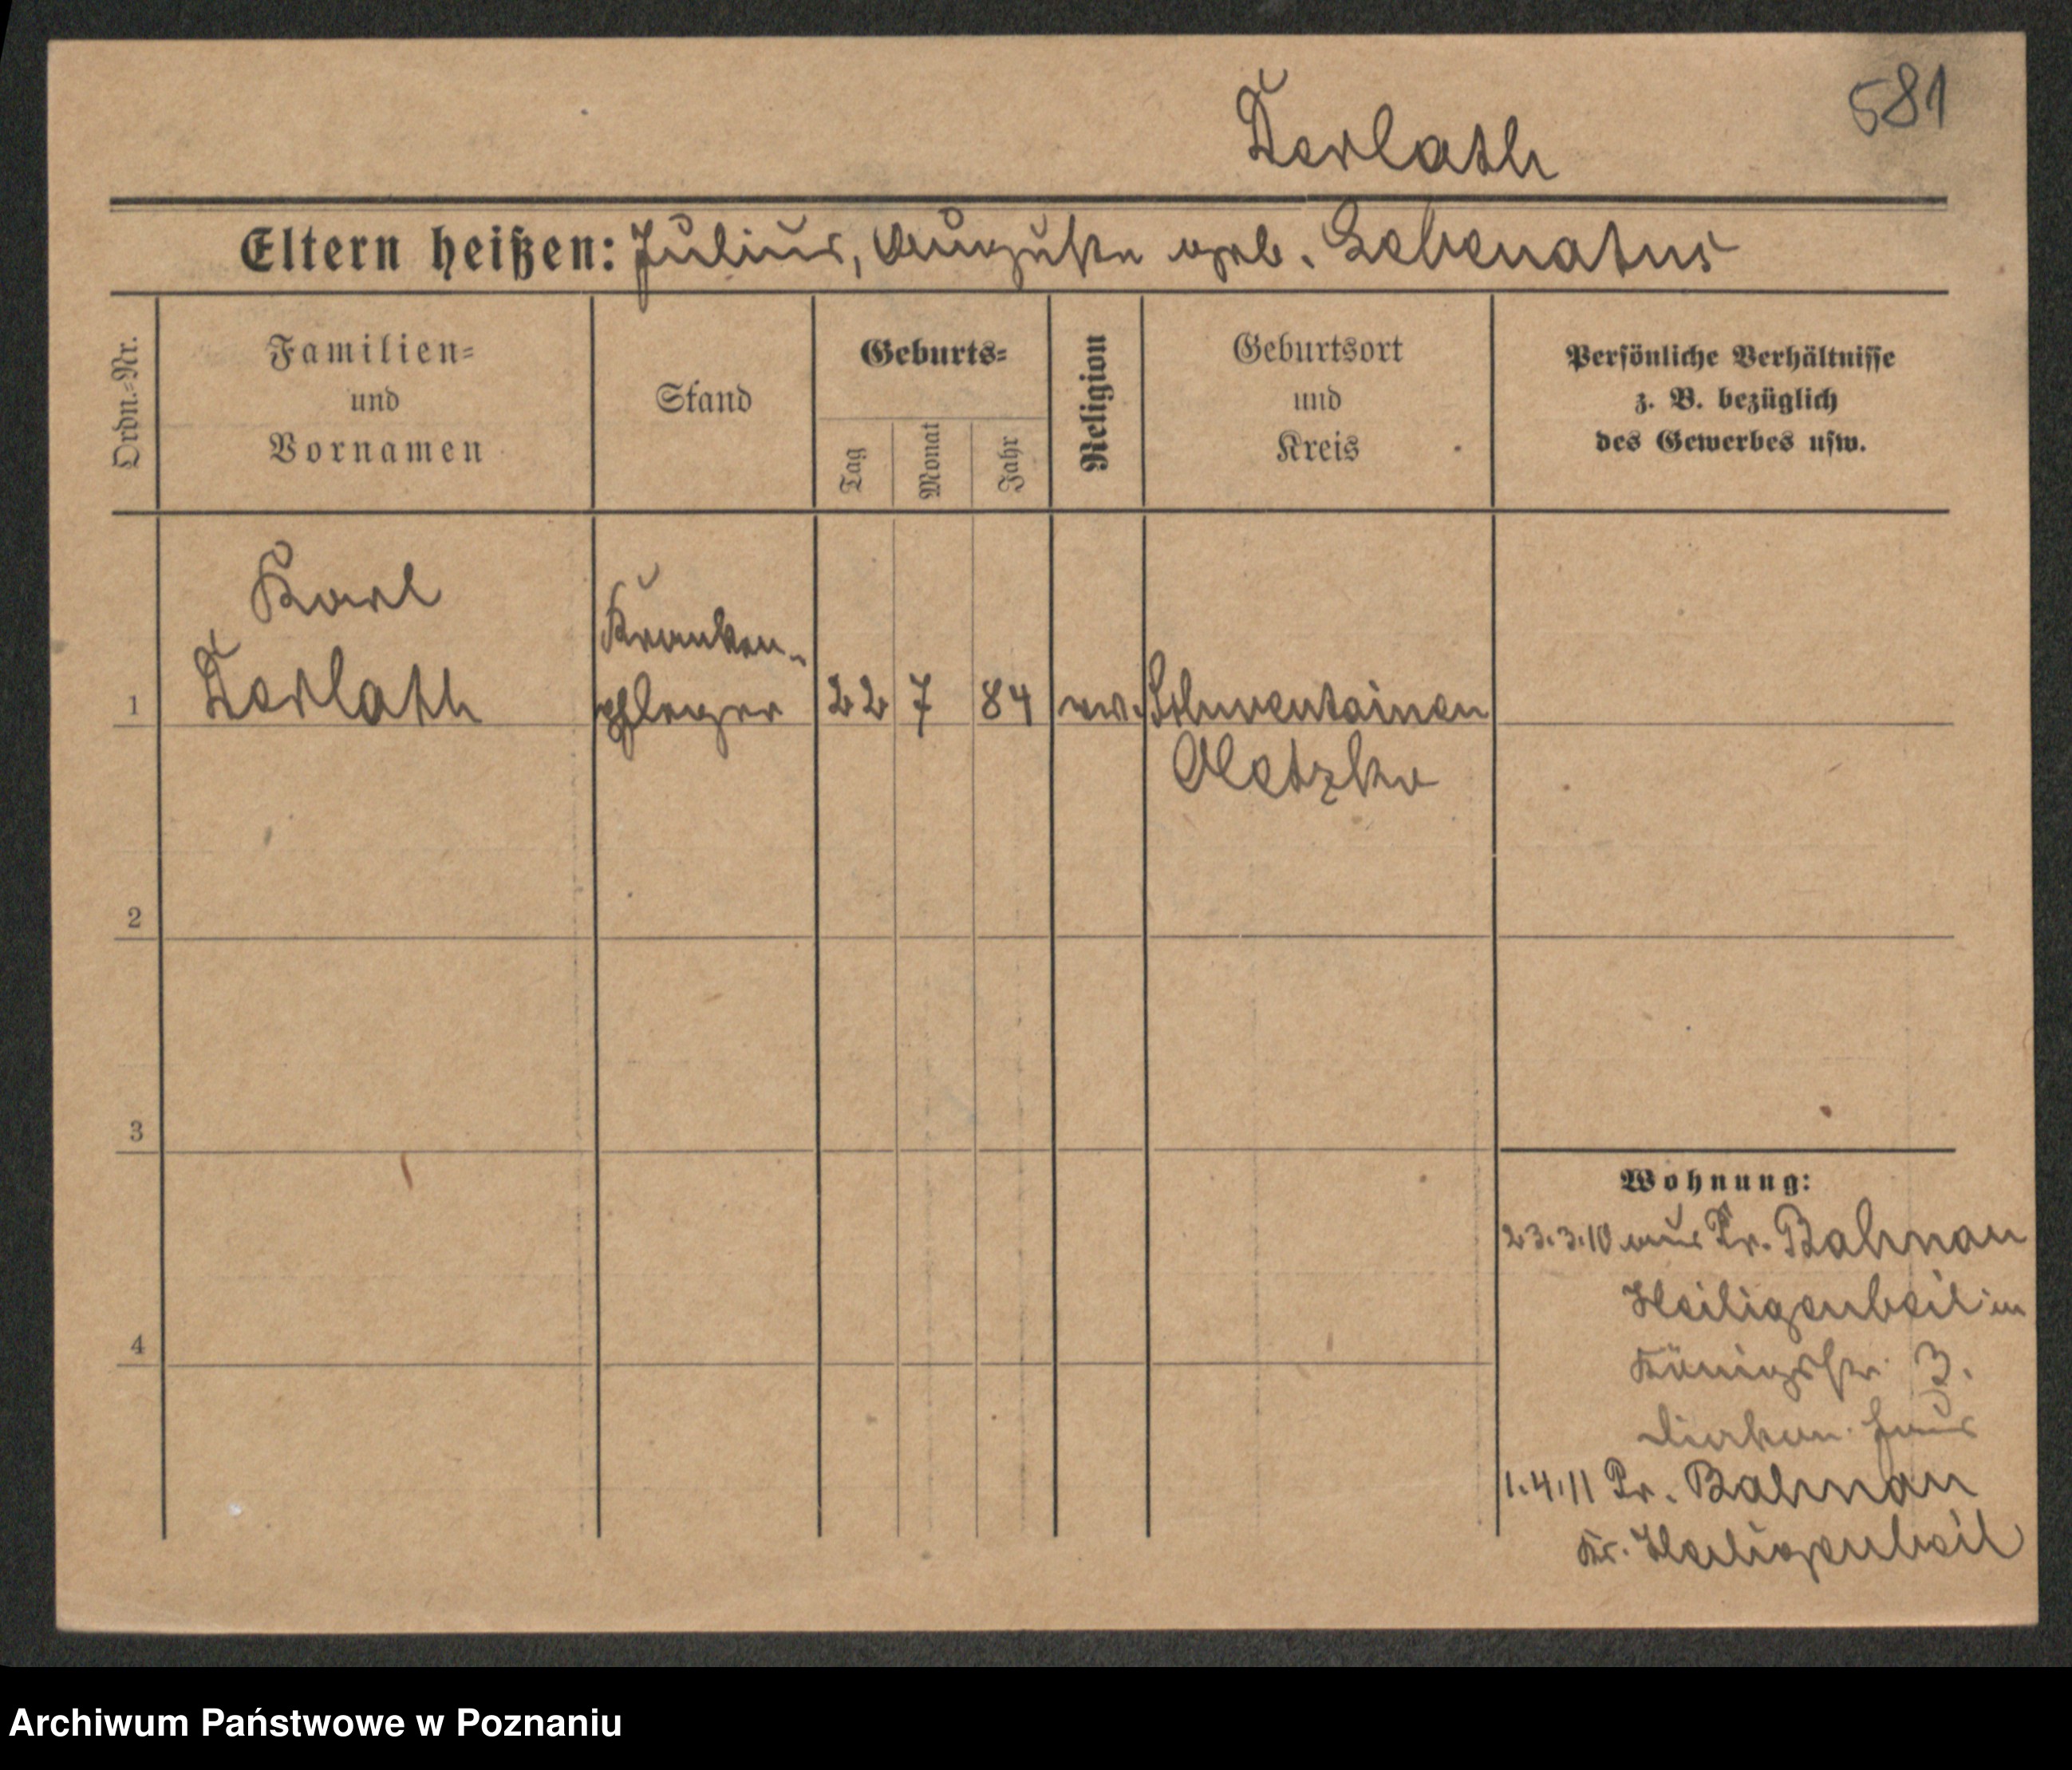 581
Eltern heißen: Julius, Auguste geb.
Ordn.=Nr.
Familien=
und
Vornamen
Stand
Geburts=
Tag
Monat
Jahr
Religion
Geburtsort
und
Kreis
Persönliche Verhältnisse
z. B. bezüglich
des Gewerbes usw.
Karl
1
Kranken-
pfleger
22 7 84
ev.
Schwentainen
Oletzko
2
3
4
Wohnung:
23.3.10 aus Pr. Bahnau
Heiligenbeil in
Königstr. 3.
Diakon. haus
1.4.11 Pr. Bahnau
Kr. Heiligenbeil
Archiwum Państwowe w Poznaniu